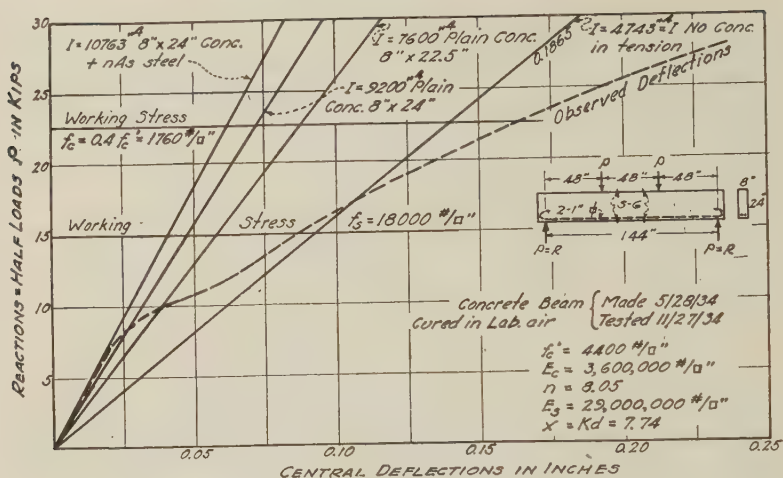 30
25
20
15
10
5
REACTIONS = HALF LOADS P IN KIPS
I = 10763"⁴ 8"x 24" Conc.
+ nAs steel
I = 7600"⁴ Plain Conc.
8" x 22.5"
I = 9200"⁴ Plain
Conc. 8"x 24"
0.1865"
I = 4743"⁴ = I No Conc.
in tension
Observed Deflections
Working Stress
fc = 0.4 fc' = 1760 #/□"
Working Stress fs = 18000 #/□"
P P
48" 48" 48"
8"
24"
2-1" ϕ
144"
P=R P=R
Concrete Beam { Made 5/28/34
Cured in Lab. air Tested 11/27/34
fc' = 4400 #/□"
Ec = 3,600,000 #/□"
n = 8.05
Es = 29,000,000 #/□"
x = Kd = 7.74
0.05 0.10 0.15 0.20 0.25
CENTRAL DEFLECTIONS IN INCHES